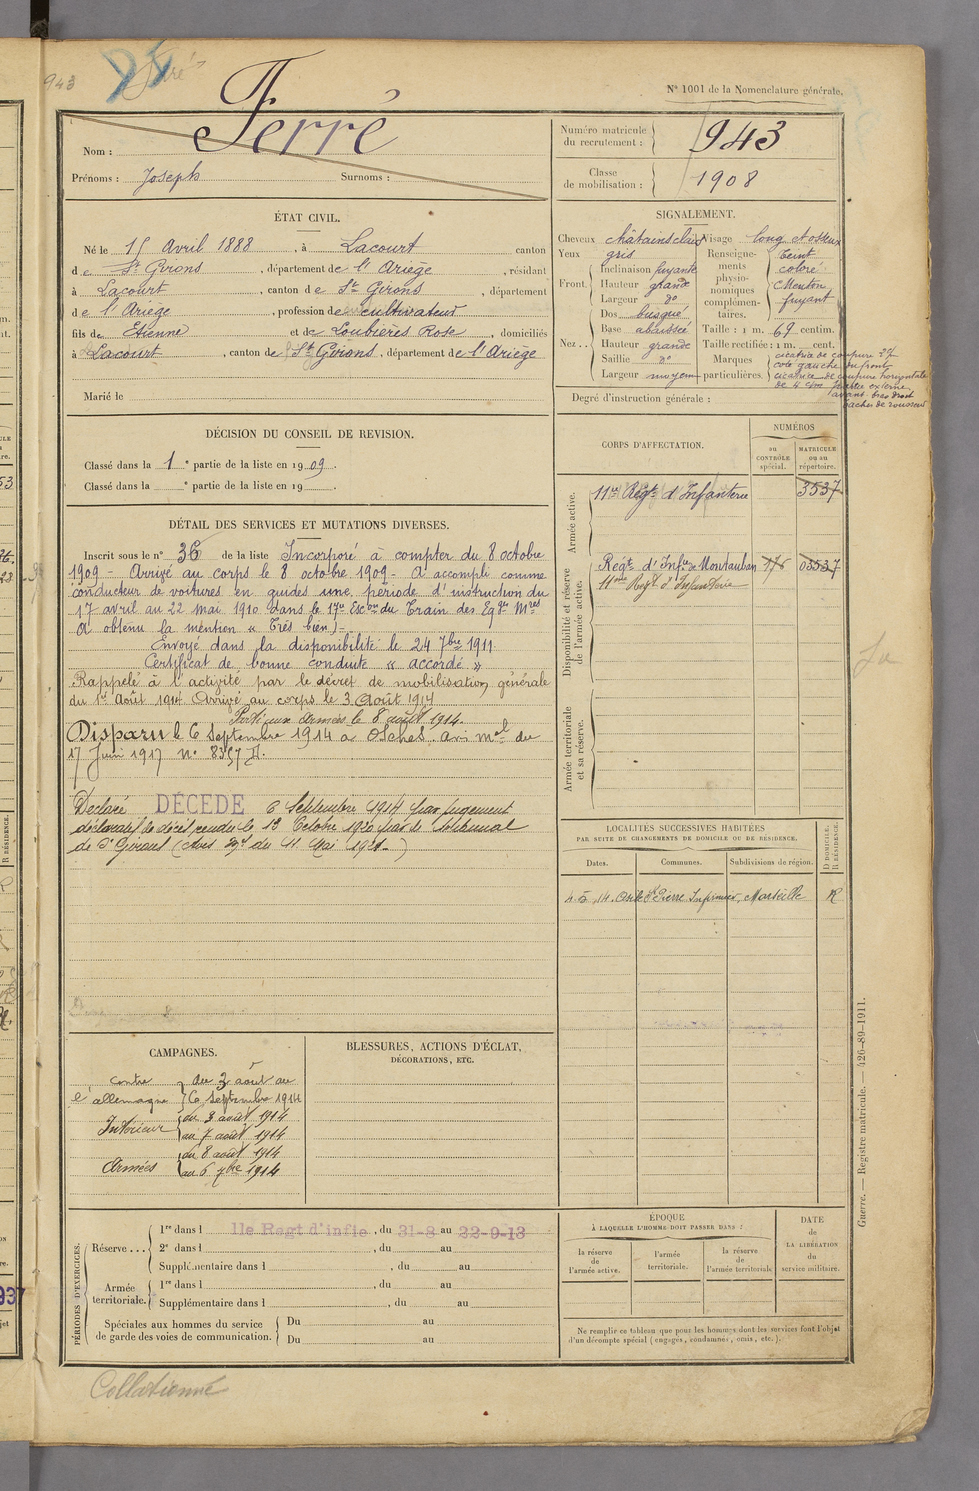 943
N° 1001 de la Nomenclature générale.
Nom : Ferré
Prénoms : Joseph Surnoms :
Numéro matricule du recrutement : 943
Classe de mobilisation : 1908
ÉTAT CIVIL.
Né le 15 Avril 1888, à Lacourt canton
de St Girons, département de l'Ariège, résidant
à Lacourt, canton de St Girons, département
de l'Ariège, profession de cultivateur
fils de Etienne et de Loubières Rose, domiciliés
à Lacourt, canton de St Girons, département de l'Ariège
Marié le
SIGNALEMENT.
Cheveux châtains clair Visage long et osseux
Yeux gris
Front. Inclinaison fuyante
Hauteur grande
Largeur do
Nez... Dos busqué
Base abaissée
Hauteur grande
Saillie do
Largeur moyen
Renseignements physionomiques complémentaires. Teint coloré Menton fuyant
Taille : 1 m. 69 centim.
Taille rectifiée : 1 m. cent.
Marques particulières
cicatrice de coupure
coté gauche du front
cicatrice de coupure horizontale
de 4 c/m externe
avant bras droit
taches de rousseur
Degré d'instruction générale :
DÉCISION DU CONSEIL DE REVISION.
Classé dans la 1e partie de la liste en 1909.
Classé dans la e partie de la liste en 19
CORPS D'AFFECTATION.
NUMÉROS
au CONTRÔLE spécial.
MATRICULE ou au répertoire.
Armée active.
11me Régt d'Infanterie 3537
Disponibilité et réserve de l'armée active.
Régt d'Infie de Montauban 03537
11me Régt d'Infanterie
Armée territoriale et sa réserve.
DÉTAIL DES SERVICES ET MUTATIONS DIVERSES.
Inscrit sous le n° 36 de la liste Incorporé à compter du 8 octobre
1909 - Arrivé au corps le 8 octobre 1909 - A accompli comme
conducteur de voitures en guides une période d'instruction du
17 avril au 22 mai 1910 dans le 17me Escon du Train des Eqges Mres
A obtenu la mention « Très bien ) -
Envoyé dans la disponibilité le 24 7bre 1911
Certificat de bonne conduite « accordé »
Rappelé à l'activité par le décret de mobilisation générale
du 1er Août 1914 Arrivé au corps le 3 Août 1914
Parti aux Armées le 8 août 1914.
Disparu le 6 Septembre 1914 à Osches. avis mel du
17 Juin 1917 n°
Déclaré DÉCÉDÉ 6 Septembre 1914 par jugement
déclaratif de décès rendu le 12 Octobre 1920 par le tribunal
de St Girons (Avis du 11 Mai 1921 - )
LOCALITÉS SUCCESSIVES HABITÉES
PAR SUITE DE CHANGEMENTS DE DOMICILE OU DE RÉSIDENCE.
Dates. Communes. Subdivisions de région. D DOMICILE. R RÉSIDENCE.
4.5.14. Asile St Pierre Infirmier, Marseille R
CAMPAGNES.
contre l'allemagne du 3 août au 6 Septembre 1914
Intérieur du 3 août 1914 au 7 août 1914
Armées du 8 août 1914 au 6 7bre 1914
BLESSURES, ACTIONS D'ÉCLAT, DÉCORATIONS, ETC.
PÉRIODES D'EXERCICES.
Réserve... 1re dans l 11e Regt d'infie, du 31-8 au 22-9-13
2e dans l , du au
Supplémentaire dans l , du au
Armée territoriale. 1re dans l , du au
Supplémentaire dans l , du au
Spéciales aux hommes du service de garde des voies de communication. Du au
Du au
ÉPOQUE
À LAQUELLE L'HOMME DOIT PASSER DANS :
la réserve de l'armée active.
l'armée territoriale.
la réserve de l'armée territoriale
DATE de LA LIBÉRATION du service militaire.
Ne remplir ce tableau que pour les hommes dont les services font l'objet
d'un décompte spécial (engagés, condamnés, omis, etc.).
Guerre. — Registre matricule. — 426-89-1911.
Collationné